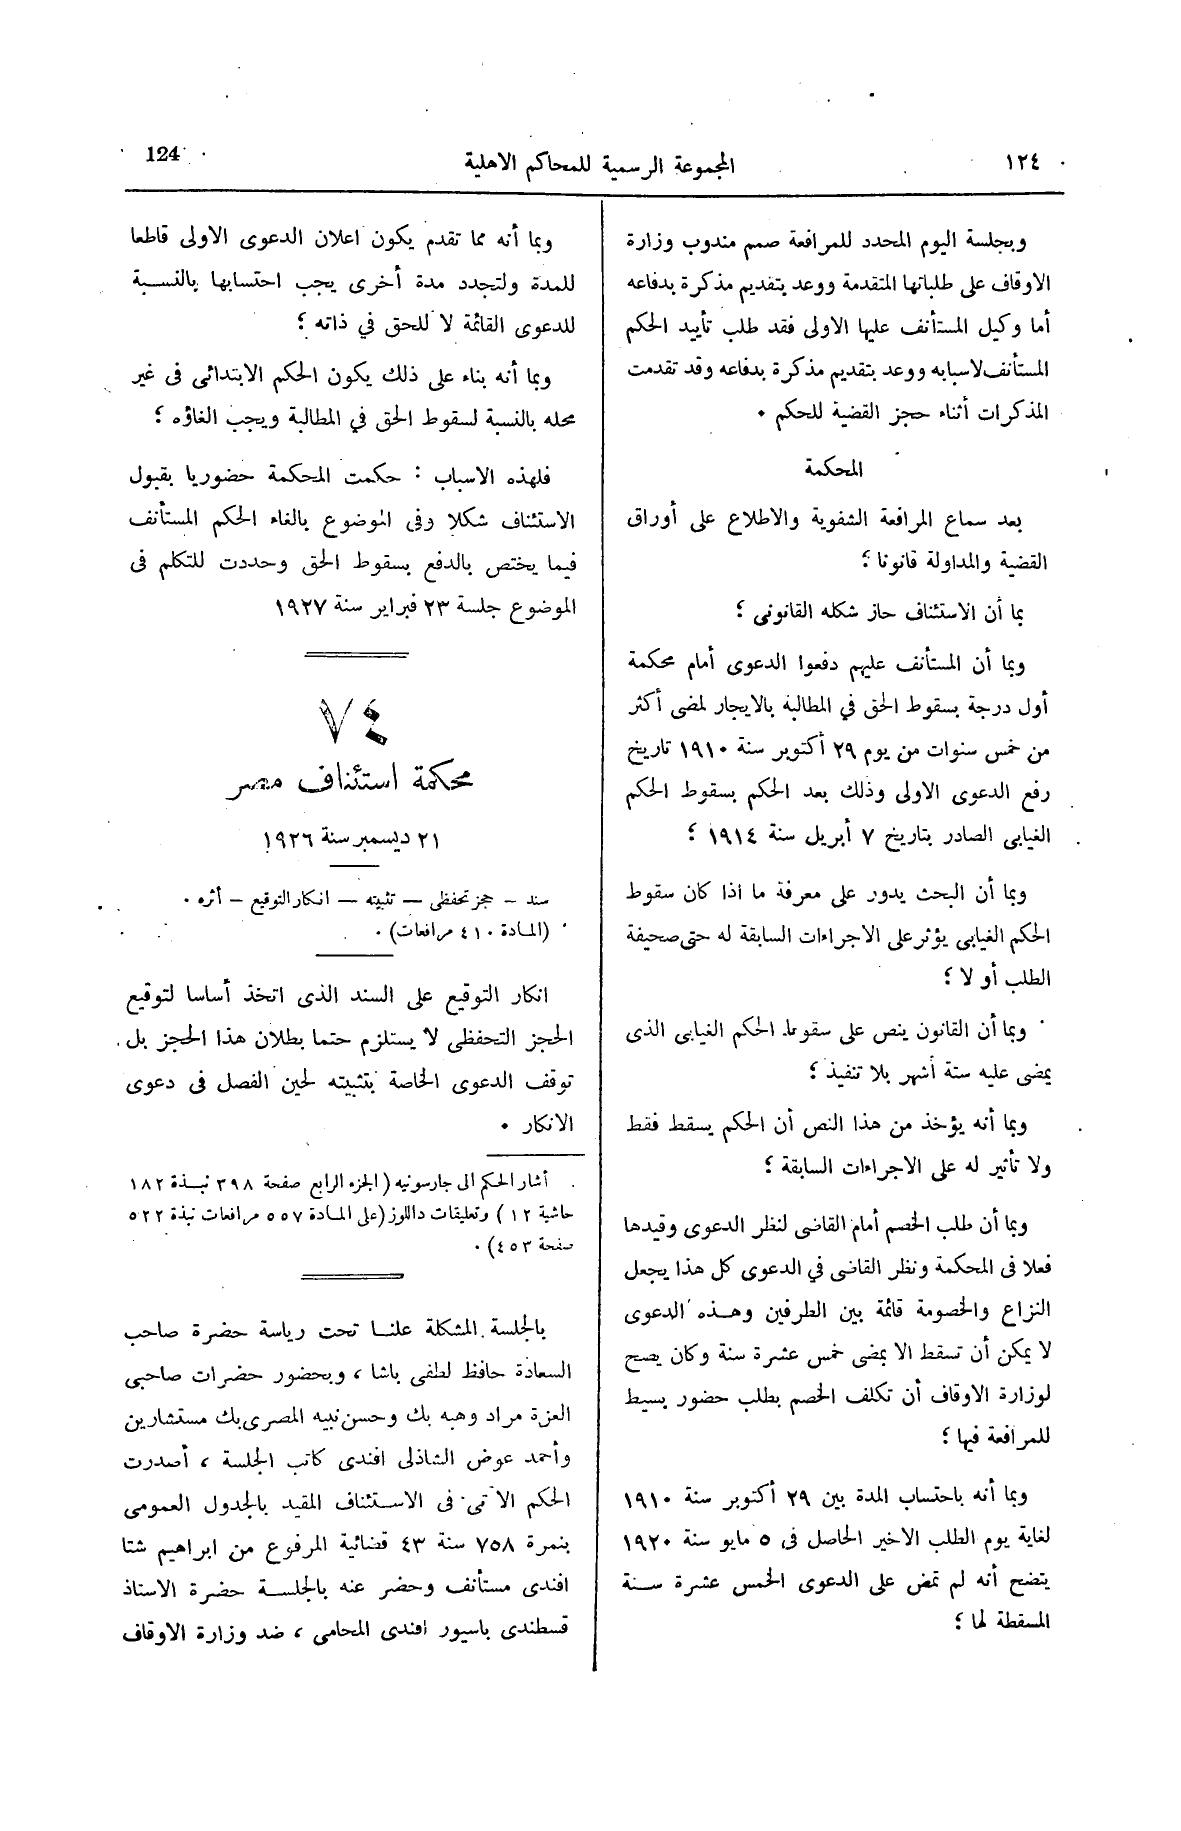 ١٢٤
المجموعة الرسمية للمحاكم الاهلية
124
وبجلسة اليوم المحدد للمرافعة صمم مندوب وزارة
الاوقاف على طلباتها المتقدمة ووعد بتقديم مذكرة بدفاعه
أما وكيل المستأنف عليها الاولى فقد طلب تأييد الحكم
المستأنف لاسبابه ووعد بتقديم مذكرة بدفاعه وقد تقدمت
المذكرات أثناء حجز القضية للحكم .
المحكمة
بعد سماع المرافعة الشفوية والاطلاع على أوراق
القضية والمداولة قانونا ؛
بما أن الاستئناف حاز شكله القانونى ؛
وبما أن المستأنف عليهم دفعوا الدعوى أمام محكمة
أول درجة بسقوط الحق في المطالبة بالايجار لمضى أكثر
من خمس سنوات من يوم ٢٩ أكتوبر سنة ١٩١٠ تاريخ
رفع الدعوى الاولى وذلك بعد الحكم بسقوط الحكم
الغيابى الصادر بتاريخ ٧ أبريل سنة ١٩١٤ ؛
وبما أن البحث يدور على معرفة ما اذا كان سقوط
الحكم الغيابى يؤثر على الاجراءات السابقة له حتى صحيفة
الطلب أو لا ؛
وبما أن القانون ينص على سقوط الحكم الغيابى الذى
يمضى عليه ستة أشهر بلا تنفيذ ؛
وبما أنه يؤخذ من هذا النص أن الحكم يسقط فقط
ولا تأثير له على الاجراءات السابقة ؛
وبما أن طلب الخصم أمام القاضى لنظر الدعوى وقيدها
فعلا فى المحكمة ونظر القاضى في الدعوى كل هذا يجعل
النزاع والخصومة قائمة بين الطرفين وهذه الدعوى
لا يمكن أن تسقط الا بمضى خمس عشرة سنة وكان يصح
لوزارة الاوقاف أن تكلف الخصم بطلب حضور بسيط
للمرافعة فيها ؛
وبما أنه باحتساب المدة بين ٢٩ أكتوبر سنة ١٩١٠
لغاية يوم الطلب الاخير الحاصل فى ٥ مايو سنة ١٩٢٠
يتضح أنه لم تمض على الدعوى الخمس عشرة سنة
المسقطة لها ؛
وبما أنه مما تقدم يكون اعلان الدعوى الاولى قاطعا
للمدة ولتجدد مدة أخرى يجب احتسابها بالنسبة
للدعوى القائمة لا للحق في ذاته ؛
وبما أنه بناء على ذلك يكون الحكم الابتدائى فى غير
محله بالنسبة لسقوط الحق في المطالبة ويجب الغاؤه ؛
فلهذه الاسباب : حكمت المحكمة حضوريا بقبول
الاستئناف شكلا وفى الموضوع بالغاء الحكم المستأنف
فيما يختص بالدفع بسقوط الحق وحددت للتكلم فى
الموضوع جلسة ٢٣ فبراير سنة ١٩٢٧
٧٤
محكمة استئناف مصر
٢١ ديسمبر سنة ١٩٢٦
سند – حجز تحفظى – تثبيته – انكار التوقيع – أثره .
(المادة ٤١٠ مرافعات) .
انكار التوقيع على السند الذى اتخذ أساسا لتوقيع
الحجز التحفظى لا يستلزم حتما بطلان هذا الحجز بل
توقف الدعوى الخاصة بتثبيته لحين الفصل فى دعوى
الانكار .
أشار الحكم الى جارسونيه (الجزء الرابع صفحة ٣٩٨ نبذة ١٨٢
حاشية ١٢) وتعليقات داللوز (على المادة ٥٥٧ مرافعات نبذة ٥٢٢
صفحة ٤٥٣) .
بالجلسة المشكلة علنا تحت رياسة حضرة صاحب
السعادة حافظ لطفى باشا ، وبحضور حضرات صاحبى
العزة مراد وهبه بك وحسن نبيه المصرى بك مستشارين
وأحمد عوض الشاذلى افندى كاتب الجلسة ، أصدرت
الحكم الآتى فى الاستئناف المقيد بالجدول العمومى
بنمرة ٧٥٨ سنة ٤٣ قضائية المرفوع من ابراهيم شتا
افندى مستأنف وحضر عنه بالجلسة حضرة الاستاذ
قسطندى باسيور افندى المحامى ، ضد وزارة الاوقاف